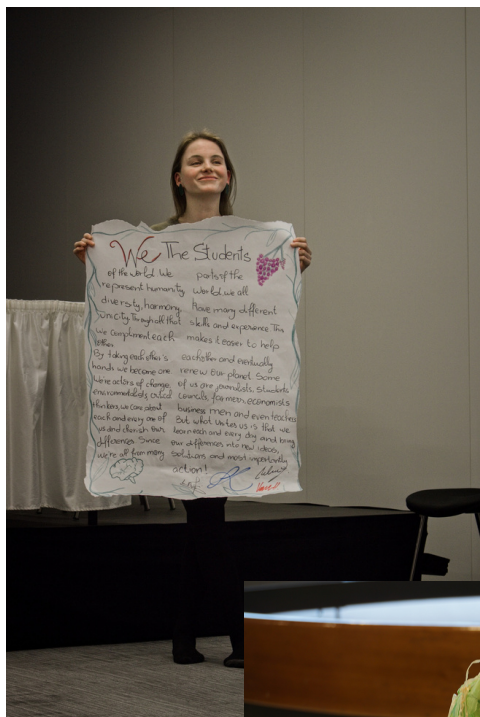 We The Students
of the world. We
represent humanity
diversity, harmony
unicity. Through all that
we compliment each
other
By taking each other's
hands we become one
We're actors of change,
environmentalists, critical
thinkers, we care about
each and every one of
us and cherish our
differences. Since
we're all from many
parts of the
World we all
Have many different
skills and experience This
makes it easier to help
each other and eventually
renew our planet. Some
of us are journalists, students
councils, farmers, economists
business men and even teachers
But what unites us is that we
learn each and every day and bring
our differences into new ideas,
solutions and most importantly
action!